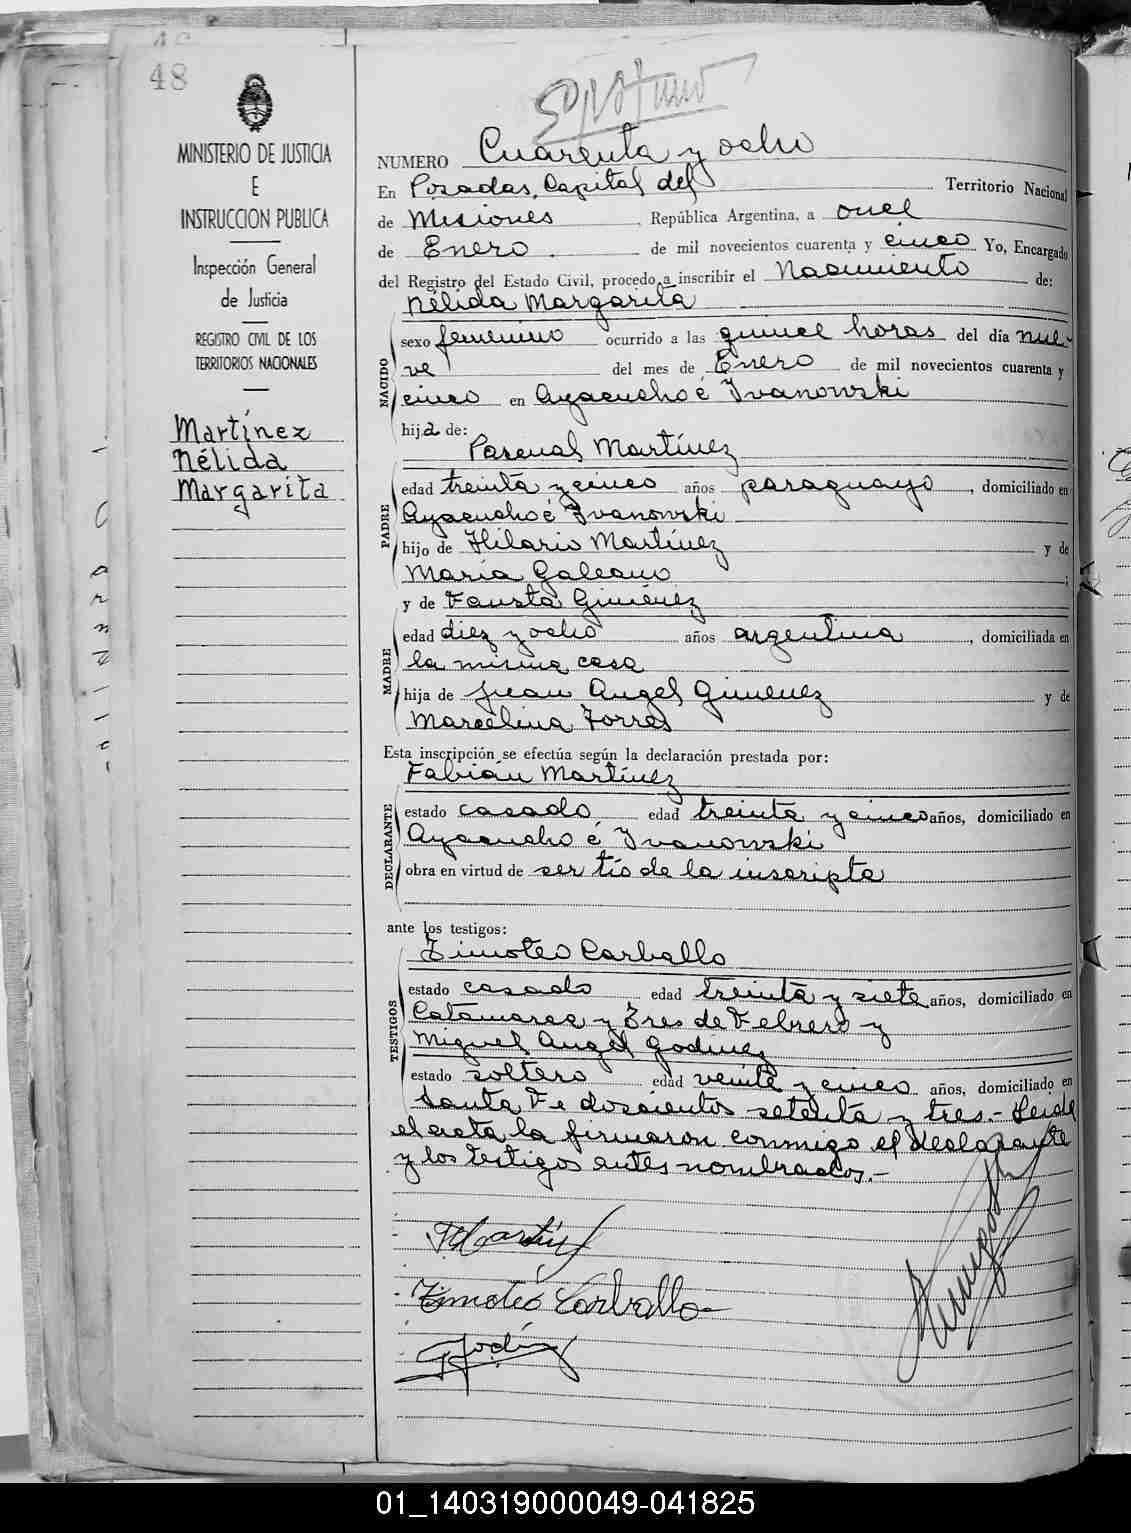 48
MINISTERIO DE JUSTICIA
E
INSTRUCCION PUBLICA
Inspección General
de Justicia
REGISTRO CIVIL DE LOS
TERRITORIOS NACIONALES
Martínez
Nélida
Margarita
NUMERO Cuarenta y ocho
En Posadas, Capital del Territorio Nacional
de Misiones, República Argentina, a once
de Enero de mil novecientos cuarenta y cinco Yo, Encargado
del Registro del Estado Civil, procedo a inscribir el Nacimiento de:
Nélida Margarita
NACIDO
sexo femenino ocurrido a las quince horas del día nue-
ve del mes de Enero de mil novecientos cuarenta y
cinco en Ayacucho é Ivanowski
hija de:
Pascual Martínez
PADRE
edad treinta y cinco años paraguayo, domiciliado en
Ayacucho é Ivanowski
hijo de Hilario Martínez y de
María Galeano;
y de Fausta Giménez
MADRE
edad diez y ocho años argentina, domiciliada en
la misma casa
hija de Juan Angel Gimenez y de
Marcelina Torres
Esta inscripción se efectúa según la declaración prestada por:
Fabián Martínez
DECLARANTE
estado casado edad treinta y cinco años, domiciliado en
Ayacucho é Ivanowski
obra en virtud de ser tío de la inscripta
ante los testigos:
Timoteo Carballo
TESTIGOS
estado casado edad treinta y siete años, domiciliado en
Catamarca y Tres de Febrero y
Miguel Angel Godinez
estado soltero edad veinte y cinco años, domiciliado en
Santa Fe doscientos setenta y tres.- Leida
el acta la firmaron conmigo el declarante
y los testigos antes nombrados.-
FMartínez
Timoteo Carballo
01_140319000049-041825